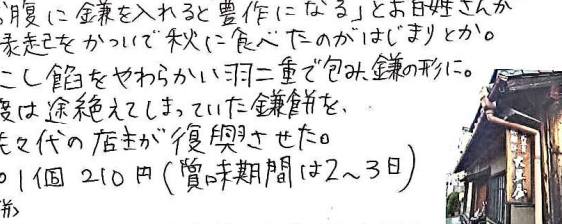 お腹に鎌を入れると豊作になる」とお百姓さんが
縁起をかついで秋に食べたのがはじまりとか。
こし餡をやわらかい羽二重で包み鎌の形に。
度は途絶えてしまっていた鎌餅を、
先々代の店主が復興させた。
○1個 210円(賞味期間は2〜3日)
餅》
大黒屋